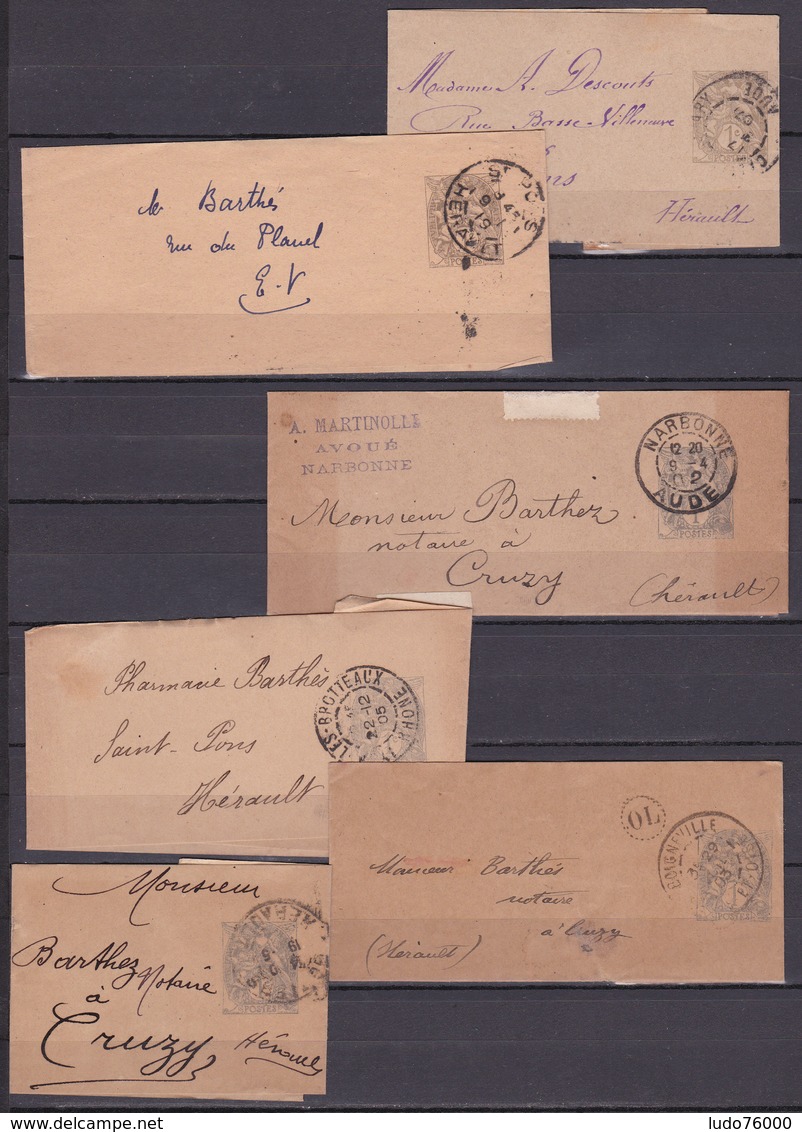 Madame A. Descouts
Rue Basse-Villeneuve
Hérault
AUDE
1c
POSTES
Me Barthés
rue du Planel
E.V
ST PONS
HERAULT
POSTES
A. MARTINOLLE
AVOUÉ
NARBONNE
NARBONNE
12 20
9 - 4
02
AUDE
POSTES
Monsieur Barthez
notaire à
Cruzy
(hérault)
Pharmacie Barthés
Saint-Pons
Hérault
LES-BROTTEAUX
22-12
05
RHONE
OL
POSTES
Monsieur Barthés
notaire
à Cruzy
(Hérault)
Monsieur
Barthez
Notaire
à
Cruzy
Hérault
HERAULT
POSTES
ludo76000